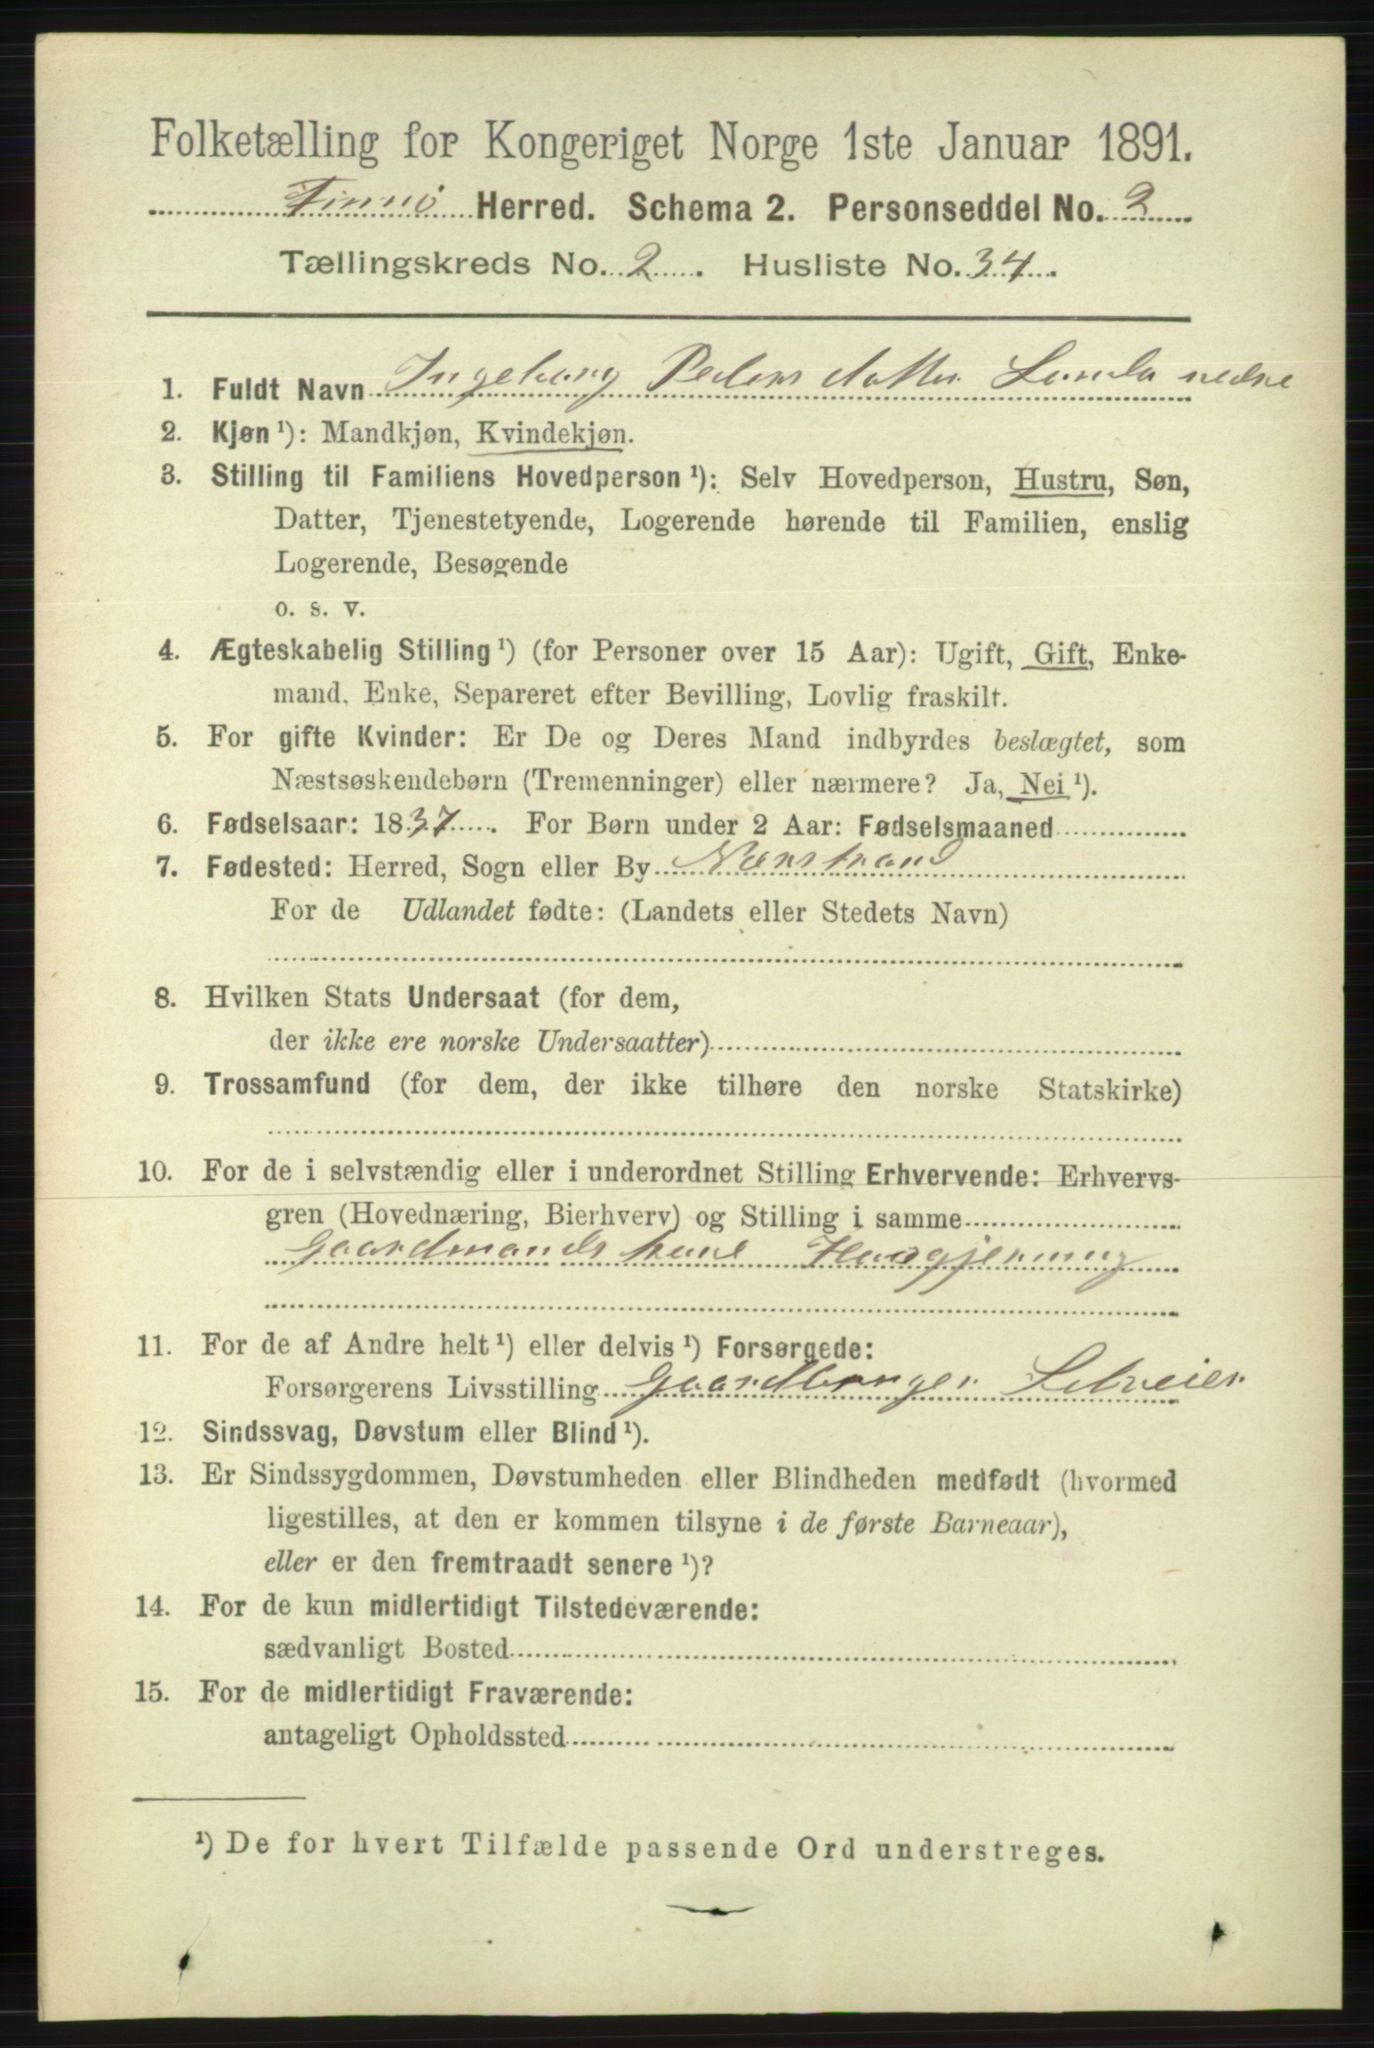 Folketælling for Kongeriget Norge 1ste Januar 1891.
Finnø Herred. Schema 2. Personseddel No. 2
Tællingskreds No. 2. Husliste No. 34.
1. Fuldt Navn Ingeborg Pedersdatter Landa nedre
2. Kjøn ¹): Mandkjøn, Kvindekjøn.
3. Stilling til Familiens Hovedperson ¹): Selv Hovedperson, Hustru, Søn,
Datter, Tjenestetyende, Logerende hørende til Familien, enslig
Logerende, Besøgende
o. s. v.
4. Ægteskabelig Stilling ¹) (for Personer over 15 Aar): Ugift, Gift, Enke-
mand, Enke, Separeret efter Bevilling, Lovlig fraskilt.
5. For gifte Kvinder: Er De og Deres Mand indbyrdes beslægtet, som
Næstsøskendebørn (Tremenninger) eller nærmere? Ja, Nei ¹).
6. Fødselsaar: 1837. For Børn under 2 Aar: Fødselsmaaned
7. Fødested: Herred, Sogn eller By Nærstrand
For de Udlandet fødte: (Landets eller Stedets Navn)
8. Hvilken Stats Undersaat (for dem,
der ikke ere norske Undersaatter)
9. Trossamfund (for dem, der ikke tilhøre den norske Statskirke)
10. For de i selvstændig eller i underordnet Stilling Erhvervende: Erhvervs-
gren (Hovednæring, Bierhverv) og Stilling i samme
Gaardmandskone Husgjerning
11. For de af Andre helt ¹) eller delvis ¹) Forsørgede:
Forsørgerens Livsstilling Gaardbruger Selveier
12. Sindssvag, Døvstum eller Blind ¹).
13. Er Sindssygdommen, Døvstumheden eller Blindheden medfødt (hvormed
ligestilles, at den er kommen tilsyne i de første Barneaar),
eller er den fremtraadt senere ¹)?
14. For de kun midlertidigt Tilstedeværende:
sædvanligt Bosted
15. For de midlertidigt Fraværende:
antageligt Opholdssted
¹) De for hvert Tilfælde passende Ord understreges.